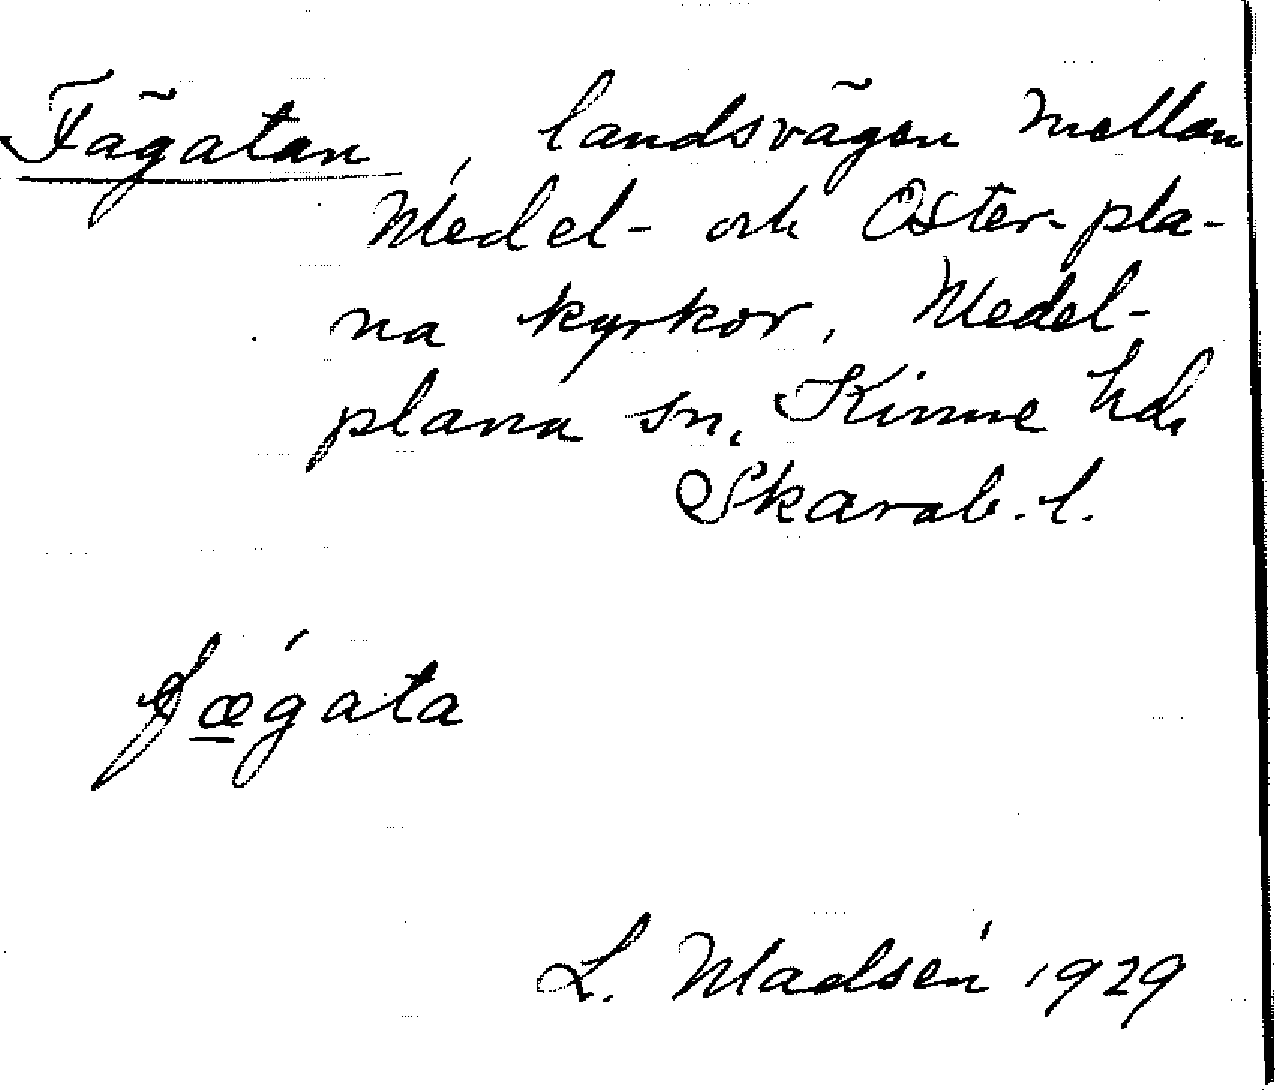 Fägatan, landsvägen mellan
Medel- och Öster-pla-
na kyrkor, Medel-
plana sn, Kinne hd,
Skarab. l.
fǽgata
L. Madsén 1929